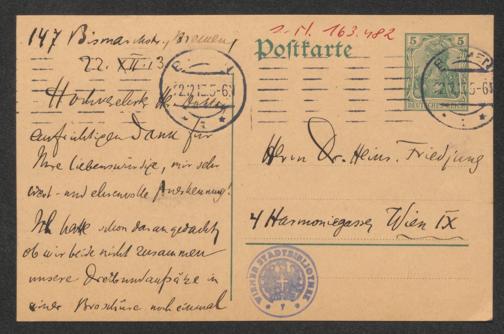 147 Bismarckstr., Bremen,
22. XII. 13
Hochverehrter Hr.
aufrichtigen Dank für
Ihre liebenswürdige, mir sehr
wert- und ehrenvolle Anerkennung!
Ich hatte schon daran gedacht,
ob wir beide nicht zusammen
unsere Dreibundaufsätze in
einer Broschüre noch einmal
I. N. 163.482
Postkarte
5 5
DEUTSCHES REICH
Herrn Dr. Heinr. Friedjung
4 Harmoniegasse, Wien IX
WIENER STADTBIBLIOTHEK